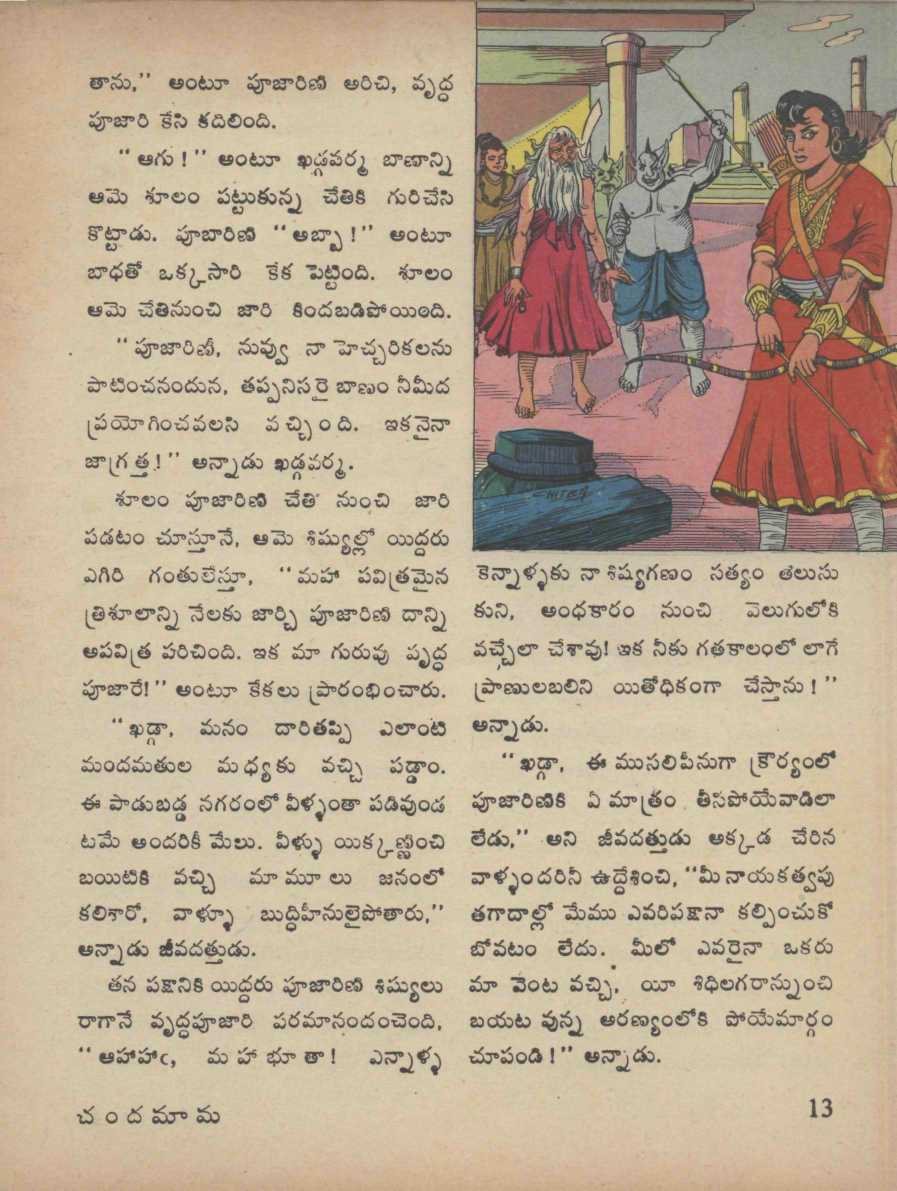 తాను,'' అంటూ పూజారిణి అరిచి, వృద్ధ
పూజారి కేసి కదిలింది.
“ఆగు!'' అంటూ ఖడ్గవర్మ బాణాన్ని
ఆమె శూలం పట్టుకున్న చేతికి గురిచేసి
కొట్టాడు. పూబారిణి “అబ్బా!'' అంటూ
బాధతో ఒక్కసారి కేక పెట్టింది. శూలం
ఆమె చేతినుంచి జారి కిందబడిపోయింది.
“పూజారిణీ, నువ్వు నా హెచ్చరికలను
పాటించనందున, తప్పనిసరై బాణం నీమీద
ప్రయోగించవలసి వచ్చింది. ఇకనైనా
జాగ్రత్త!'' అన్నాడు ఖడ్గవర్మ.
శూలం పూజారిణి చేతి నుంచి జారి
పడటం చూస్తూనే, ఆమె శిష్యుల్లో యిద్దరు
ఎగిరి గంతులేస్తూ, “మహా పవిత్రమైన
త్రిశూలాన్ని నేలకు జార్చి పూజారిణి దాన్ని
అపవిత్ర పరిచింది. ఇక మా గురువు వృద్ధ
పూజారే!'' అంటూ కేకలు ప్రారంభించారు.
“ఖడ్గా, మనం దారితప్పి ఎలాంటి
మందమతుల మధ్యకు వచ్చి పడ్డాం.
ఈ పాడుబడ్డ నగరంలో వీళ్ళంతా పడివుండ
టమే అందరికీ మేలు. వీళ్ళు యిక్కణ్ణించి
బయిటికి వచ్చి మామూలు జనంలో
కలిశారో, వాళ్ళూ బుద్ధిహీనులైపోతారు,''
అన్నాడు జీవదత్తుడు.
తన పక్షానికి యిద్దరు పూజారిణి శిష్యులు
రాగానే వృద్ధపూజారి పరమానందంచెంది,
“ఆహాహాఁ, మహాభూతా! ఎన్నాళ్ళ
CHITRA
కెన్నాళ్ళకు నా శిష్యగణం సత్యం తెలుసు
కుని, అంధకారం నుంచి వెలుగులోకి
వచ్చేలా చేశావు! ఇక నీకు గతకాలంలో లాగే
ప్రాణులబలిని యితోధికంగా చేస్తాను!''
అన్నాడు.
“ఖడ్గా, ఈ ముసలిపీనుగా క్రౌర్యంలో
పూజారిణికి ఏ మాత్రం తీసిపోయేవాడిలా
లేడు,'' అని జీవదత్తుడు అక్కడ చేరిన
వాళ్ళందరినీ ఉద్దేశించి, “మీ నాయకత్వపు
తగాదాల్లో మేము ఎవరిపక్షానా కల్పించుకో
బోవటం లేదు. మీలో ఎవరైనా ఒకరు
మా వెంట వచ్చి, యీ శిధిలగరాన్నుంచి
బయట వున్న అరణ్యంలోకి పోయేమార్గం
చూపండి!'' అన్నాడు.
చందమామ
13